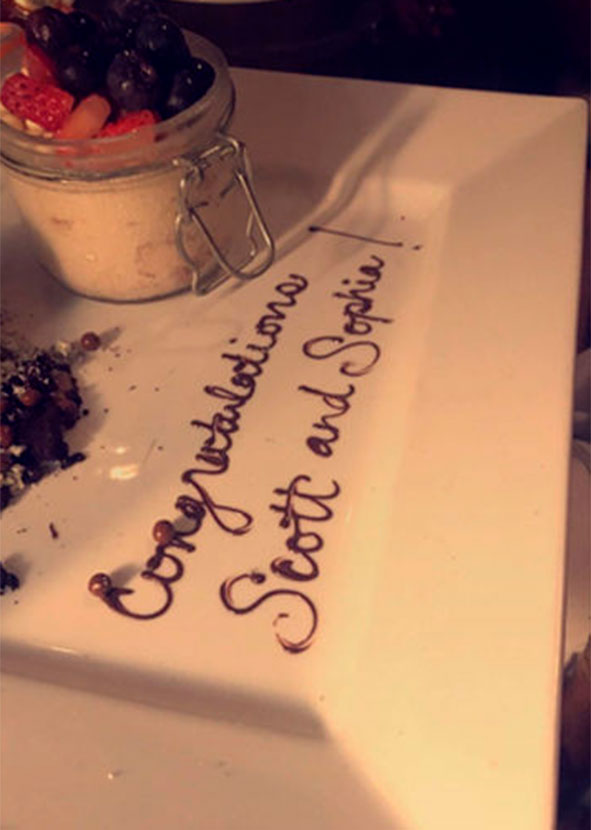 Congratulations !
Scott and Sophia !